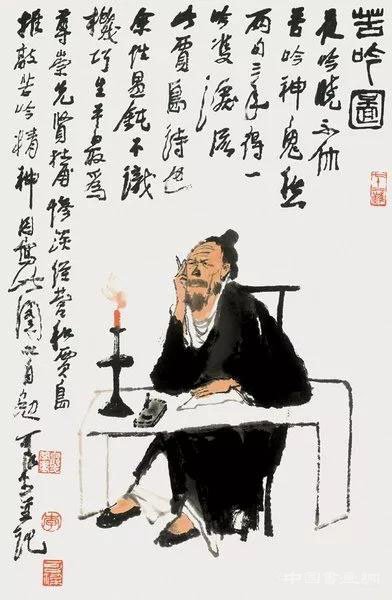 苦吟圖
夜吟曉不休
苦吟神鬼愁
两句三年得一
吟雙淚流
此賈島詩也
余性愚鈍不識
機巧生平最為
尊崇先賢杜甫慘淡經營和賈島
推敲苦吟精神因寫此圖以自勉 可染並記